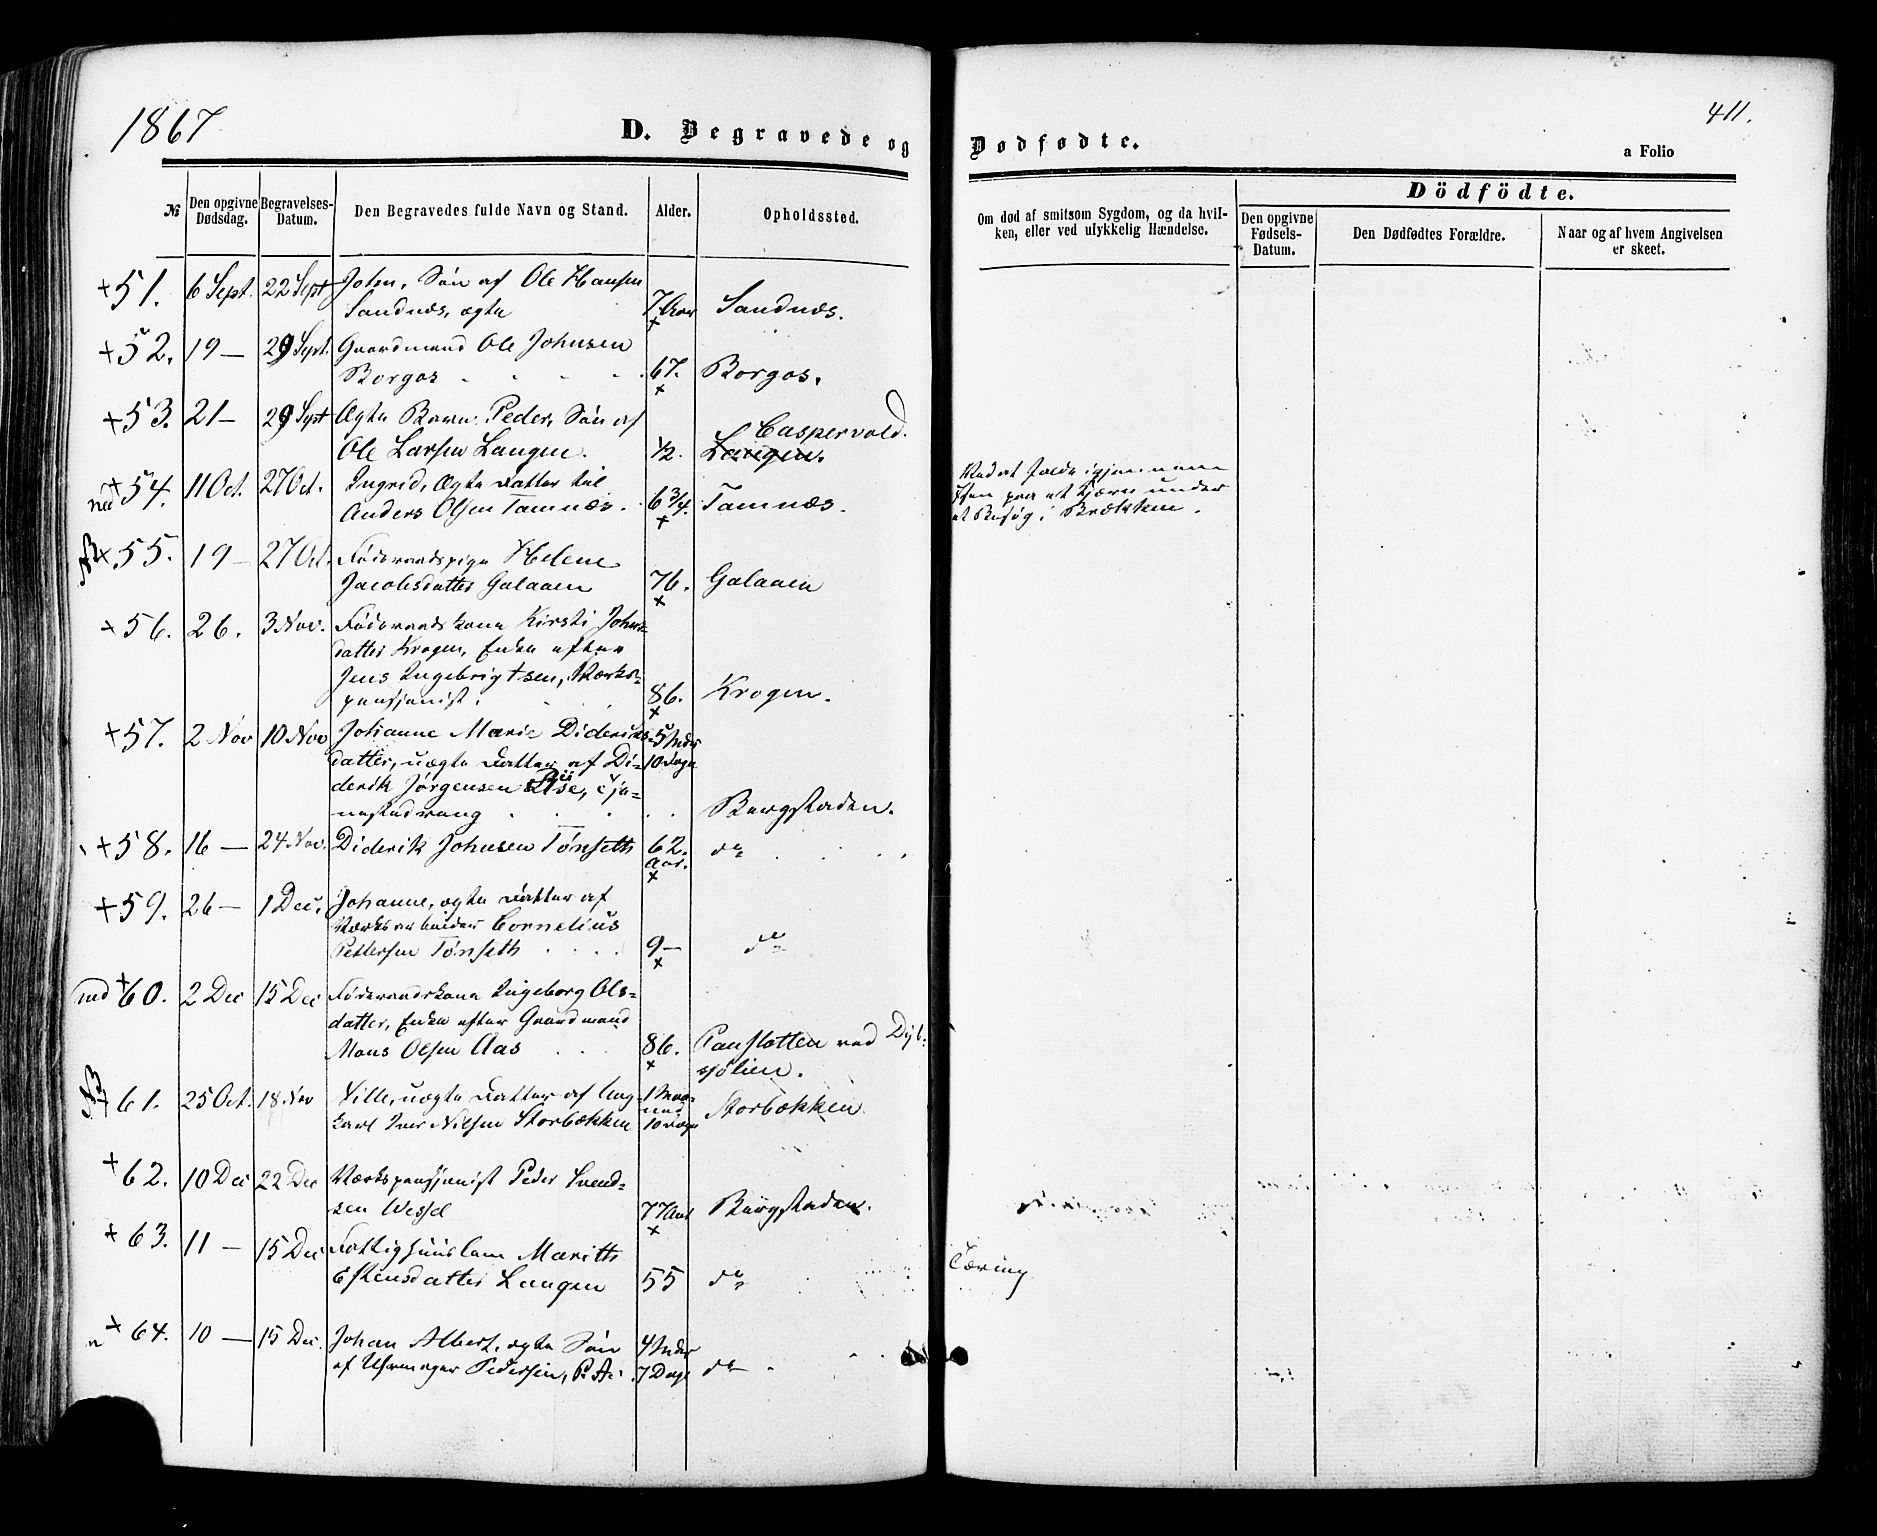 1867
D. Begravede og
Dødfødte.
411.
a Folio
№
Den opgivne Dødsdag.
Begravelses-Datum.
Den Begravedes fulde Navn og Stand.
Alder.
Opholdssted.
Om død af smitsom Sygdom, og da hvil-
ken, eller ved ulykkelig Hændelse.
Dödfödte.
Den opgivne Fødsels-Datum.
Den Dødfødtes Forældre.
Naar og af hvem Angivelsen er skeet.
+51. 6 Sept. 22 Sept John, Søn af Ole Hansen
Sandnæs, ægte 7 Aar Sandnæs.
+52. 19 — 29 Sept. Gaardmand Ole Johnsen
Borgos 67. Borgos.
+53. 21 — 29 Sept Ægte Barn Peder, Søn af Caspervold.
Ole Larsen Langen. 1/2. Langen.
+54. 11 Oct. 27 Oct. Ingrid, Ægte Datter til
Anders Olsen Tamnæs. 6 3/4. Tamnæs.
Ved at falde igjennem
Isen paa et Kjærn under
et Besøg i Brækken.
NB +55. 19 — 27 Oct. Føderaadspige Helene
Jacobsdatter Galaaen 76. Galaaen
+56. 26. 3 Nov. Føderaadskone Kirsti Johns-
datter Krogen, Enke efter
Jens Ingebrigtsen, Værks-
pensjonist. 86. Krogen.
+57. 2 Nov 10 Nov Johanne Marie Dideriks- 5 Mdr
datter, uægte Datter af Di- 10 Dage
derik Jørgensen Rise, Tje-
nestedreng Bergstaden.
+58. 16 — 24 Nov. Diderik Johnsen Tønseth 62 Aar. do
+59. 26 — 1 Dec. Johanne, ægte Datter af
Værksarbeider Cornelius
Pettersen Tønseth 9 — do
+60. 2 Dec 15 Dec Føderaadskone Ingeborg Ols-
datter, Enke efter Gaardmand
Mons Olsen Aas 86. ved Dyb-
sjølien.
NB +61. 25 Oct. 18 Nov Sille, uægte Datter af Ung- 1 Maa-
karl Iver Nilsen Storbækken ned 10 Dage Storbækken
+62. 10 Dec 22 Dec Værkspensjonist Peder Svend-
sen Wessel 77 Aar Bergstaden.
+63. 11 — 15 Dec Fattighuuslem Marith
Estensdatter Langen 55 do
Tæring
+64. 10 — 15 Dec. Johan Albert, ægte Søn 4 Mdr
af Uhrmager Pedersen, 7 Dage do